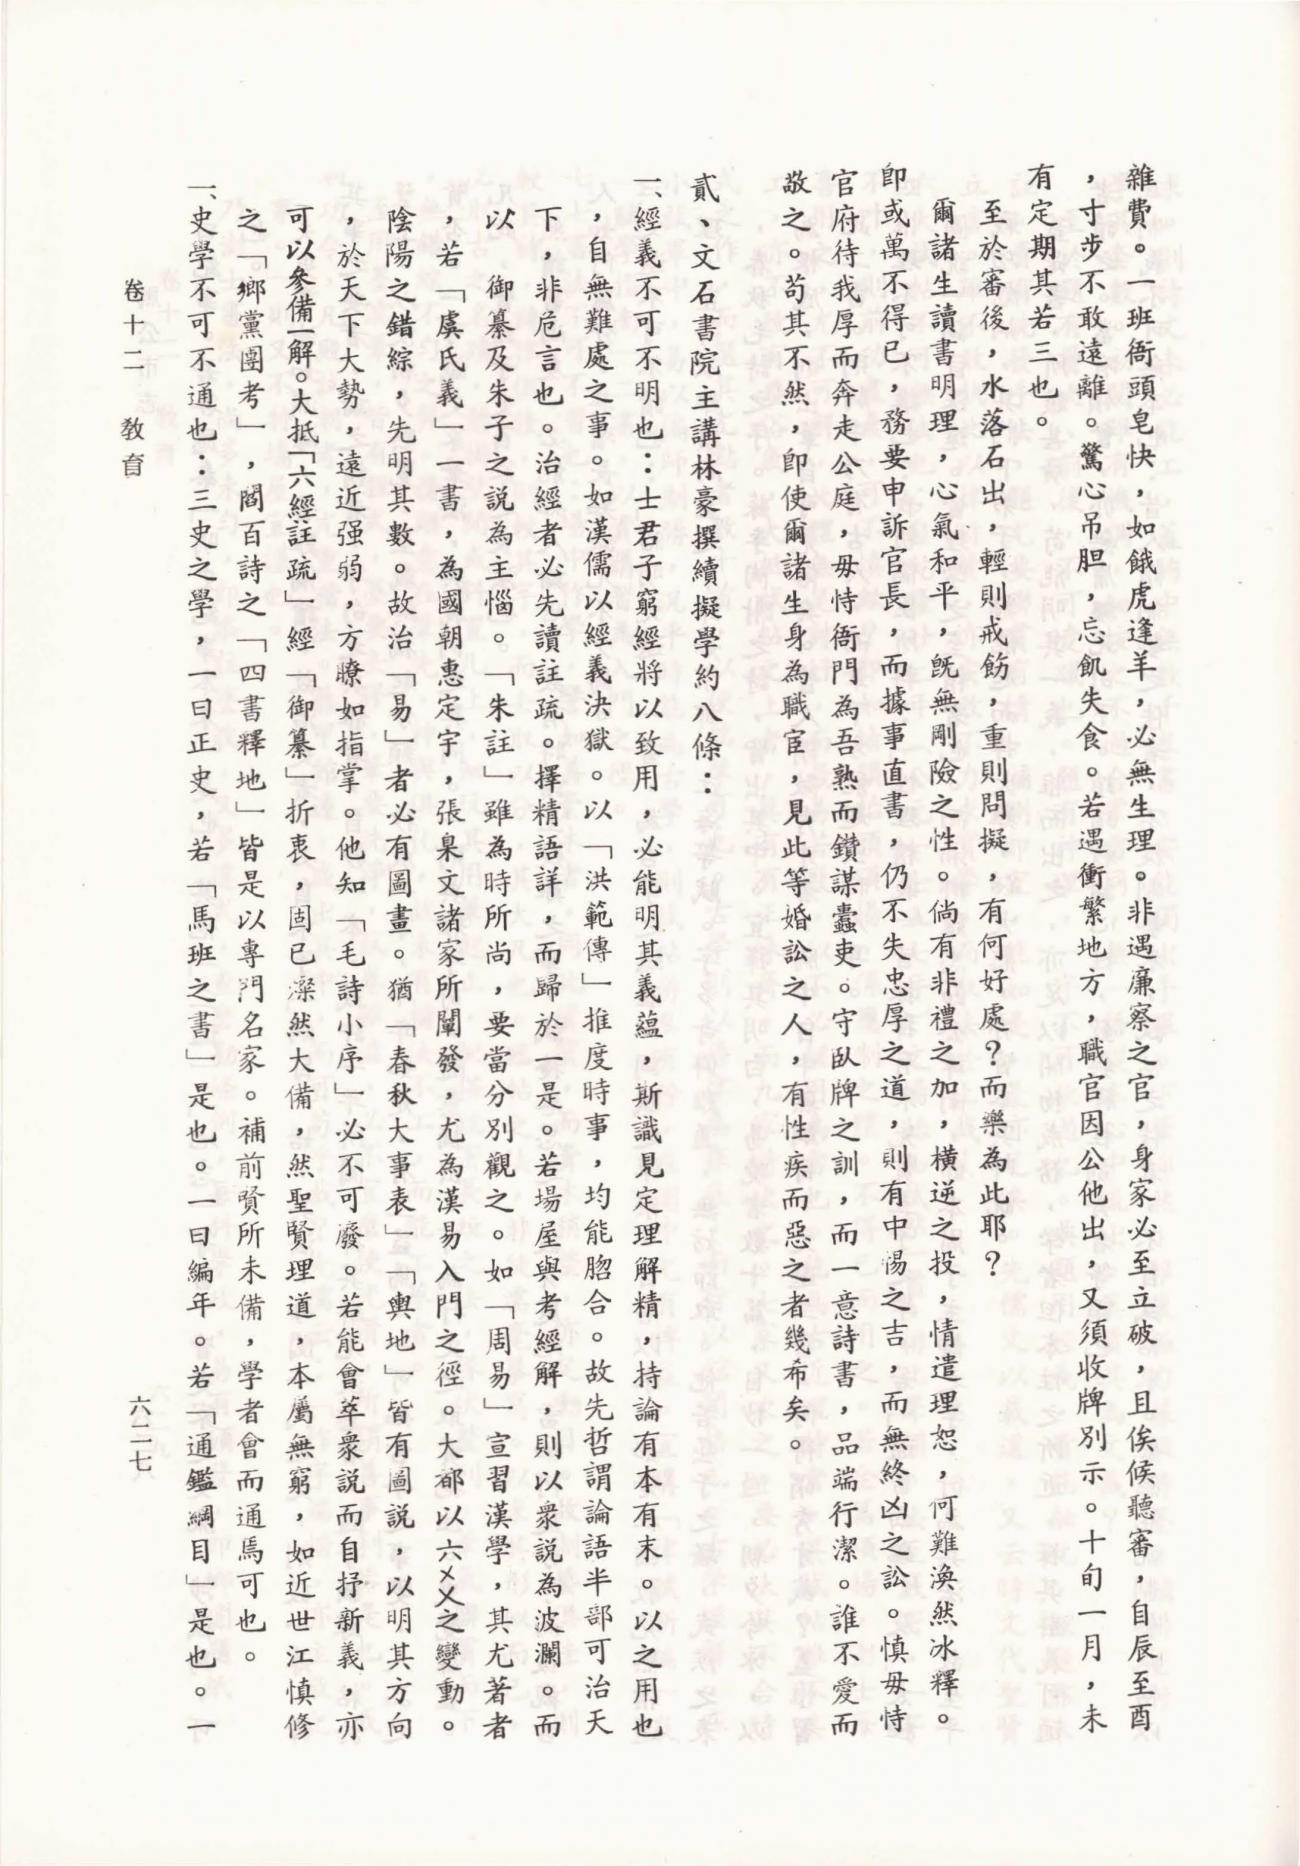 雜費。一班衙頭皂快，如餓虎逢羊，必無生理。非遇廉察之官，身家必至立破，且俟候聽審，自辰至酉
，寸步不敢遠離。驚心吊胆，忘飢失食。若遇衝繁地方，職官因公他出，又須收牌別示。十旬一月，未
有定期其苦三也。
至於審後，水落石出，輕則戒飭，重則問擬，有何好處？而樂為此耶？
爾諸生讀書明理，心氣和平，既無剛險之性。倘有非禮之加，橫逆之投，情遣理恕，何難渙然冰釋。
卽或萬不得已，務要申訴官長，而據事直書，仍不失忠厚之道，則有中惕之吉，而無終凶之訟。慎毋恃
官府待我厚而奔走公庭，毋恃衙門為吾熟而鑽謀蠹吏。守臥牌之訓，而一意詩書，品端行潔。誰不愛而
敬之。苟其不然，卽使爾諸生身為職宦，見此等婚訟之人，有性疾而惡之者幾希矣。
貳、文石書院主講林豪撰續擬學約八條：
一、經義不可不明也：士君子窮經將以致用，必能明其義蘊，斯識見定理解精，持論有本有末。以之用世
，自無難處之事。如漢儒以經義決獄。以「洪範傳」推度時事，均能脗合。故先哲謂論語半部可治天
下，非危言也。治經者必先讀註疏。擇精語詳，而歸於一是。若場屋與考經解，則以衆說為波瀾。而
以　御纂及朱子之說為主惱。「朱註」雖為時所尚，要當分別觀之。如「周易」宣習漢學，其尤著者
，若「虞氏義」一書，為國朝惠定宇，張臬文諸家所闡發，尤為漢易入門之徑。大都以六爻之變動。
陰陽之錯綜，先明其數。故治「易」者必有圖畫。猶「春秋大事表」「輿地」皆有圖說，以明其方向
，於天下大勢，遠近强弱，方瞭如指掌。他知「毛詩小序」必不可廢。若能會萃衆說而自抒新義，亦
可以參備一解。大抵「六經註疏」經「御纂」折衷，固已燦然大備，然聖賢理道，本屬無窮，如近世江慎修
之「鄉黨圖考」，閻百詩之「四書釋地」皆是以專門名家。補前賢所未備，學者會而通焉可也。
一、史學不可不通也：三史之學，一曰正史，若「馬班之書」是也。一曰編年。若「通鑑綱目」是也。一
卷十二　教育　六二七